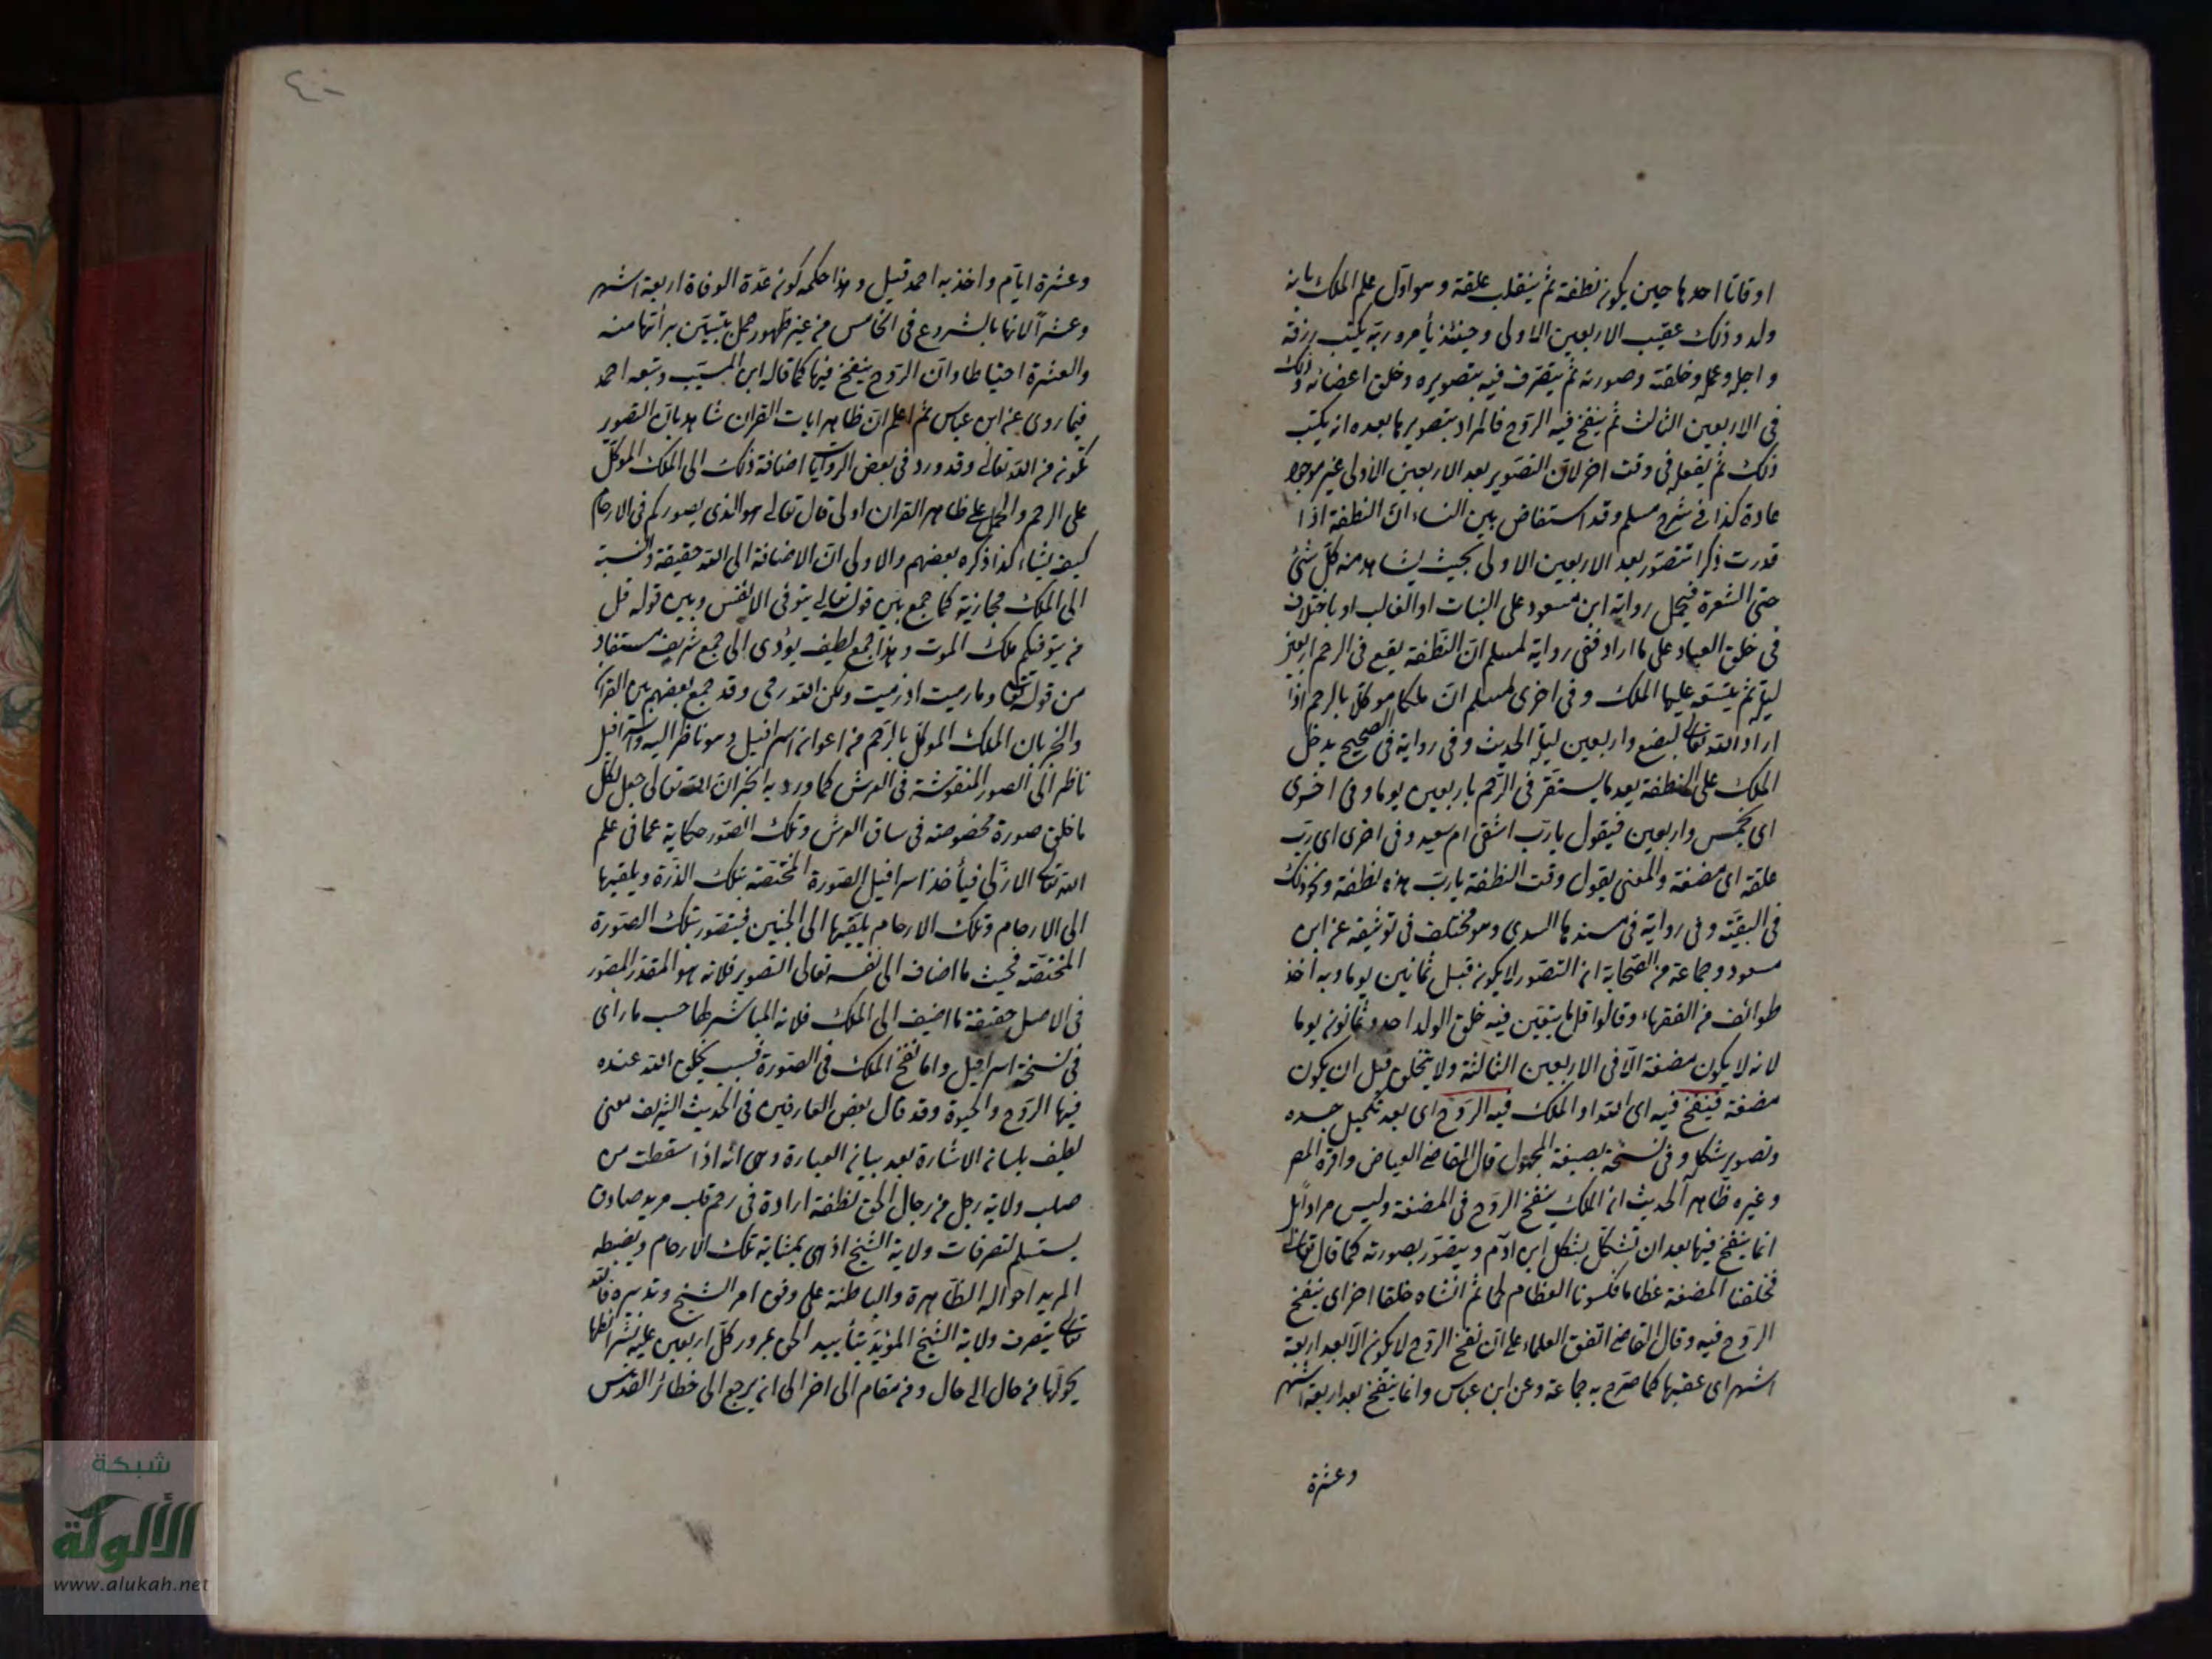 اوقاتا احدها حين يكون نطفة ثم ينقلب علقة وهو اول علم الملك بانه
ولد وذلك عقيب الاربعين الاولى وحينئذ يأمر ربه يكتب رزقه
واجله وعمله وخلقته وصورته ثم يتصرف فيه بتصويره وخلق اعضائه وذلك
في الاربعين الثالث ثم ينفخ فيه الروح فالمراد بتصويرها بعده انه يكتب
ذلك ثم يفعله في وقت اخر لان التصوير بعد الاربعين الاولى غير موجود
عادة كذا في شرح مسلم وقد استفاض بين النساء ان النطفة اذا
قدرت ذكرا تتصور بعد الاربعين الاولى بحيث يشاهد منه كل شئ
حتى الشعرة فيحمل رواية ابن مسعود على البنات او الغالب او باختلاف
في خلق العباد على ما اراد ففي رواية لمسلم ان النطفة يقع في الرحم اربعين
ليلة ثم يتسور عليها الملك وفي اخرى لمسلم ان ملكا موكلا بالرحم اذا
اراد الله تعالى لبضع واربعين ليلة الحديث وفي رواية في الصحيح يدخل
الملك على النطفة بعد ما يستقر في الرحم باربعين يوما وفي اخرى
اى بخمس واربعين فيقول يا رب اشقى ام سعيد وفي اخرى اى رب
علقة اى مضغة والمعنى يقول وقت النطفة يا رب هذه نطفة ونحو ذلك
في البقية وفي رواية في مسندها السدى وهو مختلف في توثيقه عن ابن
مسعود وجماعة من الصحابة ان التصور لا يكون قبل ثمانين يوما وبه اخذ
طوائف من الفقهاء وقالوا اقل ما يتبين فيه خلق الولد احد وثمانون يوما
لانه لا يكون مضغة الا في الاربعين الثالثة ولا يتخلق قبل ان يكون
مضغة فينفخ فيه اى الله او الملك فيه الروح اى بعد تكميل جسده
وتصوير شكله وفي نسخة بصيغة المجهول قال القاضي العياض واقره المص
وغيره ظاهر الحديث ان الملك ينفخ الروح في المضغة وليس مرادا بل
انما ينفخ فيها بعد ان تشكل بشكل ابن ادم ويتصور بصورته كما قال تعالى
فخلقنا المضغة عظاما فكسونا العظام لحما ثم انشأناه خلقا اخر اى ينفخ
الروح فيه وقال القاضي اتفق العلماء على ان نفخ الروح لا يكون الا بعد اربعة
اشهر اى عقبها كما صرح به جماعة وعن ابن عباس وانما ينفخ بعد اربعة اشهر
وعشرة
٤٠
وعشرة ايام واخذ به احمد قيل وهذا حكمه كون عدة الوفاة اربعة اشهر
وعشرا لانها بالشروع في الخامس من غير ظهور حمل يتبين برأتها منه
والعشرة احتياطا وان الروح ينفخ فيها كما قاله ابن المسيب وتبعه احمد
فيما روى عن ابن عباس ثم اعلم ان ظاهر ايات القران شاهد بان التصور
يكون من الله تعالى وقد ورد في بعض الروايات اضافة ذلك الى الملك الموكل
على الرحم والحمل على ظاهر القران اولى قال تعالى هو الذى يصوركم في الارحام
كيف يشاء كذا ذكره بعضهم والاولى ان الاضافة الى الله حقيقة والنسبة
الى الملك مجازية كما جمع بين قوله تعالى يتوفى الانفس وبين قوله قل
من يتوفيكم ملك الموت وهذا جمع لطيف يؤدى الى جمع شريف مستفاد
من قوله تعالى وما رميت اذ رميت ولكن الله رمى وقد جمع بعضهم بين القران
والخبر بان الملك الموكل بالرحم من اعوان اسرافيل وهو ناظر اليه واسرافيل
ناظر الى الصور المنقوشة في العرش كما ورد به الخبر ان الله تعالى جعل لكل
ما خلق صورة مخصوصة في ساق العرش وتلك الصور حكاية عما في علم
الله تعالى الازلى فيأخذ اسرافيل الصورة المختصة بتلك الذرة ويلقيها
الى الارحام وتلك الارحام يلقيها الى الجنين فيتصور بتلك الصورة
المختصة فحيث ما اضاف الى نفسه تعالى التصوير فلانه هو المقدر المصور
في الاصل حقيقة ما اضيف الى الملك فلانه المباشر لها حسب ما راى
في نسخة اسرافيل واما نفخ الملك في الصورة فسبب يخلق الله عنده
فيها الروح والحيوة وقد قال بعض العارفين في الحديث الشريف معنى
لطيف بلسان الاشارة بعد بيان العبارة وهى انه اذا سقطت من
صلب ولاية رجل من رجال الحق نطفة ارادة في رحم قلب مريد صادق
يستسلم لتصرفات ولاية الشيخ اذ هى بمثابة تلك الارحام ويضبط
المريد احواله الظاهرة والباطنة على وفق امر الشيخ وتدبيره فالله
تعالى يتصرف ولاية الشيخ المؤيد بتأييد الحق بمرور كل اربعين عليه
يحولها من حال الى حال ومن مقام الى اخر الى ان يرجع الى حظائر القدس
شبكة
الألوكة
www.alukah.net